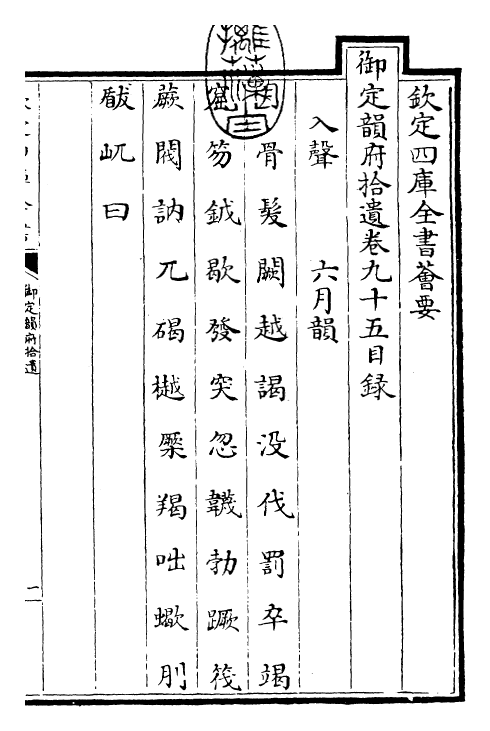 欽定四庫全書薈要
御定韻府拾遺卷九十五目録
入聲　六月韻
月骨髮闕越謁没伐罰卒竭
窟笏鉞歇發突忽韈勃蹶筏
蕨閥訥兀碣樾橜羯咄蠍刖
猒屼曰
御定韻府拾遺
一